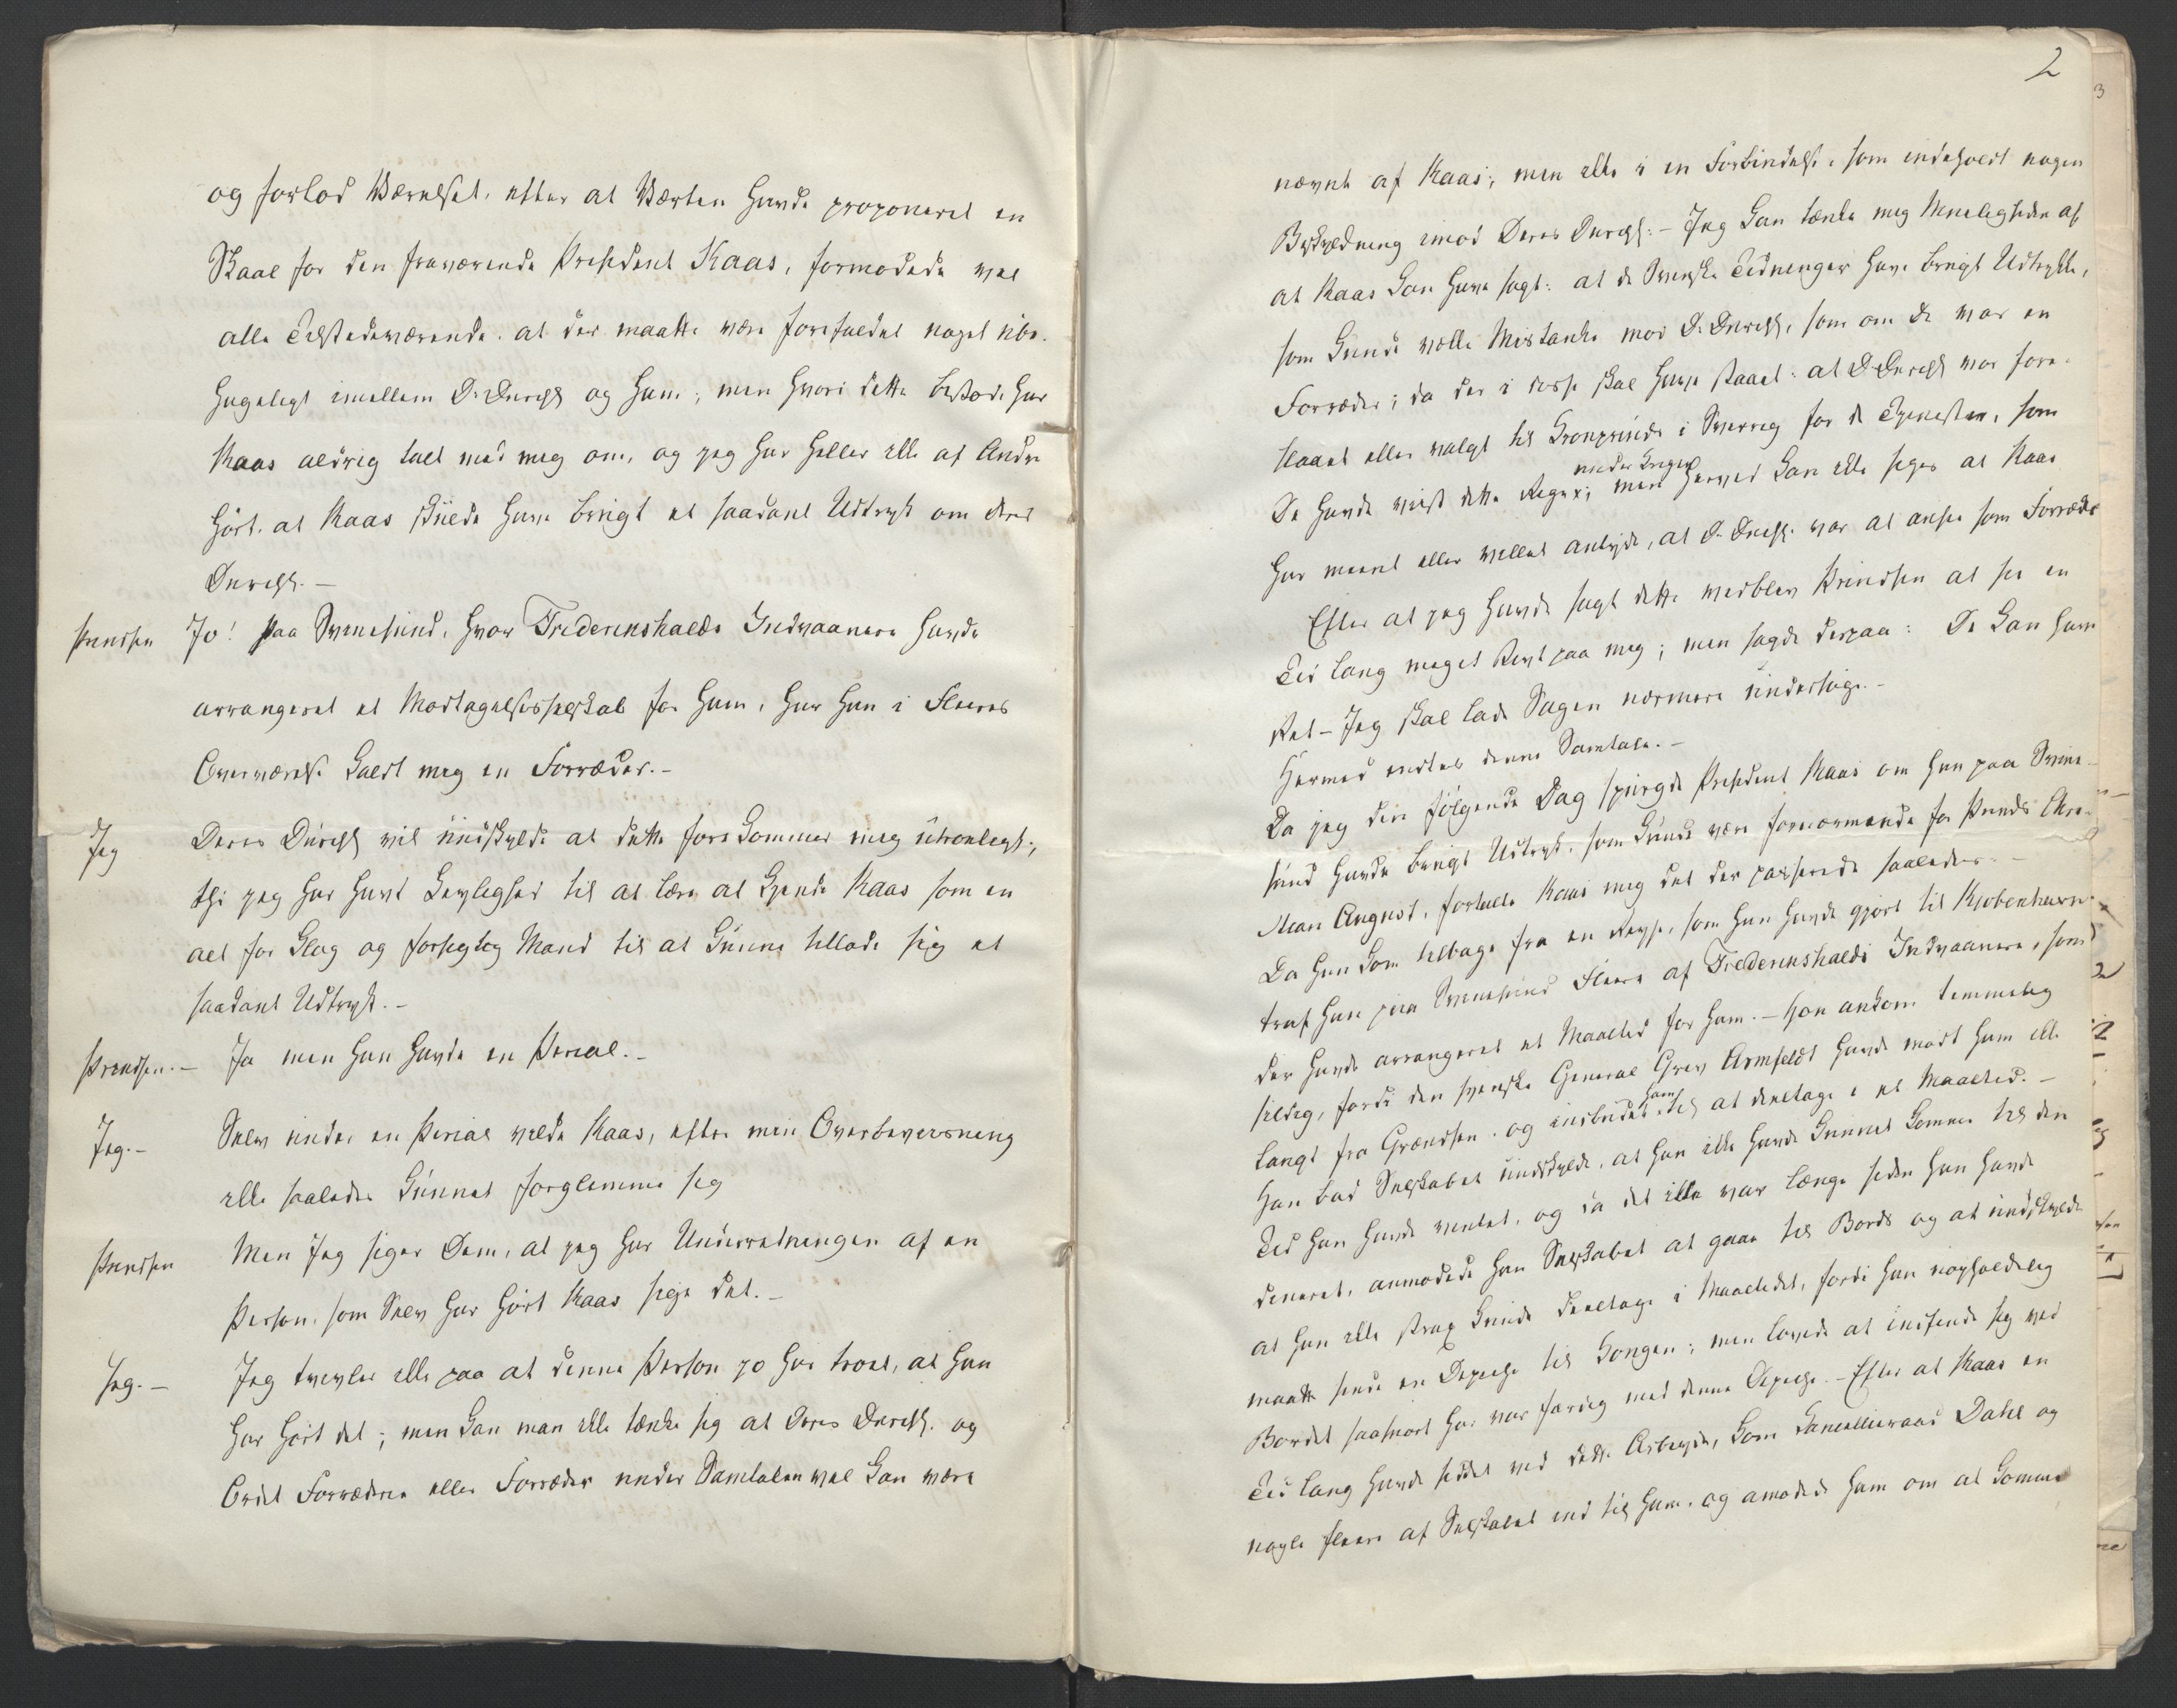 og forlod Værelset, efter at Værten havde proponeret en
Skaal for den fraværende President Kaas, formodede vel
alle Tilstedeværende, at der maatte være forefaldet noget ube-
hageligt imellem D. Durchl. og ham; men hvori dette bestod, har
Kaas aldrig talt med mig om, og jeg har heller ikke af Andre
hört, at Kaas skulde have brugt et saadant Udtryk om Deres
Durchl. –
Prindsen Jo! paa Svinesund, hvor Fredrikshalds Indvaanere havde
arrangeret et Modtagelsesselskab for ham, har han i Fleeres
Overværelse kaldt mig en Forræder. –
Jeg Deres Durchl. vil undskylde at dette forekommer mig utroeligt;
thi jeg har havt Leylighed til at lære at kjende Kaas som en
alt for klog og forsigtig Mand til at kunne tillade sig et
saadant Udtryk. –
Prindsen. – Ja men han havde en Perial. –
Jeg. – Selv under en Perial vilde Kaas, efter min Overbeviisning
ikke saaledes kunnet forglemme sig
Prindsen Men Jeg siger Dem, at jeg har Underretningen af en
Person, som Selv har hört Kaas sige det. –
Jeg. – Jeg tvivler ikke paa at denne Person jo har troet, at han
har hört det; men kan man ikke tænke sig at Deres Durchl. og
Ordet Forræderie eller Forræder under Samtalen vel kan være
2
nævnt af Kaas; men ikke i en Forbindelse, som indeholdt nogen
Beskyldning imod Deres Durchl. – Jeg kan tænke mig Mueligheden af
at Kaas kan have sagt: at de Svenske Tidninger have brugt Udtrykke,
som kunde vække Mistanke mod D. Durchl., som om De var en
Forræder; da der i disse skal have staaet: at D. Durchl. var fore-
slaaet eller valgt til Kronprinds i Sverrig for de Tjenester, som
De havde viist dette Rige under Krigen; men herved kan ikke siges at Kaas
har meent eller villet antyde, at D. Durchl. var at ansee som Forræder
Efter at jeg havde sagt dette vedblev Prindsen at see en
Tid lang meget stivt paa mig; men sagde derpaa: De kan have
Ret – Jeg skal lade Sagen nærmere undersöge. –
Hermed endtes denne Samtale. –
Da jeg den fölgende Dag spurgde President Kaas om han paa Svine-
sund havde brugt Udtryk, som kunde være fornærmende for Prinds Chri-
stian August, fortalte Kaas mig det der passerede saaledes. –
Da han kom tilbage fra en Reyse, som han havde gjort til Kjöbenhavn
traf han paa Svinesund Fleere af Fredrikshalds Indvaanere, som
der havde arrangeret et Maaltid for ham. – Han ankom temmelig
sildig, fordi den svenske General Grev Armfeldt havde mödt ham ikke
langt fra Grændsen, og indbudet ham til at deeltage i et Maaltid. –
Han bad Selskabet undskylde, at han ikke havde kunnet komme til den
Tid han havde ventet, og da det ikke var længe siden han havde
dineret, anmodede han Selskabet at gaae til Bords og at undskylde
at han ikke strax kunde deeltage i Maaltidet, fordi han uopholdelig
maatte sende en Depeche til Kongen; men lovede at indfinde sig ved
Bordet saasnart han var færdig med denne Depeche. – Efter at Kaas en
Tid lang havde siddet ved dette Arbeyde, kom Kancellieraad Dahl og
nogle fleere af Selskabet ind til ham, og amodede ham om at komme